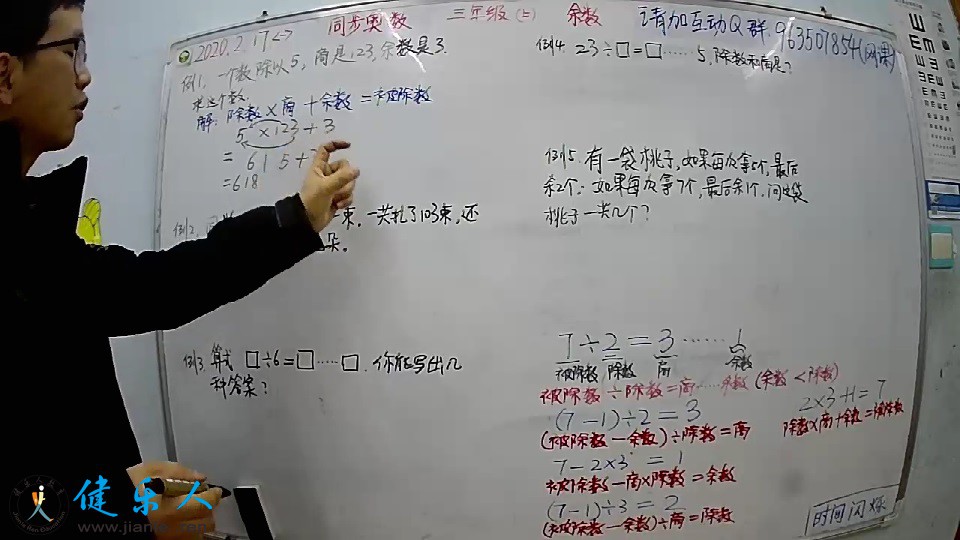 同步奥数 三年级(上) 余数 请加互动Q群963507854(网课)
2020.2.17
例1. 一个数除以5, 商是123, 余数是3.
求这个数.
解: 除数×商+余数=被除数
5×123+3
= 615+
=618
例2.
束. 一共扎了103束, 还
朵.
例3. 算式 □÷6=□……□. 你能写出几
种答案?
例4. 23÷□=□……5, 除数和商是?
例5. 有一袋桃子, 如果每次拿5个, 最后
余2个; 如果每次拿7个, 最后余1个, 问这袋
桃子一共几个?
7÷2=3……1
被除数 除数 商 余数
被除数÷除数=商……余数 (余数<除数)
(7-1)÷2=3
(被除数-余数)÷除数=商
7-2×3=1
被除数-商×除数=余数
(7-1)÷3=2
(被除数-余数)÷商=除数
2×3+1=7
除数×商+余数=被除数
时间闪烁
健乐人